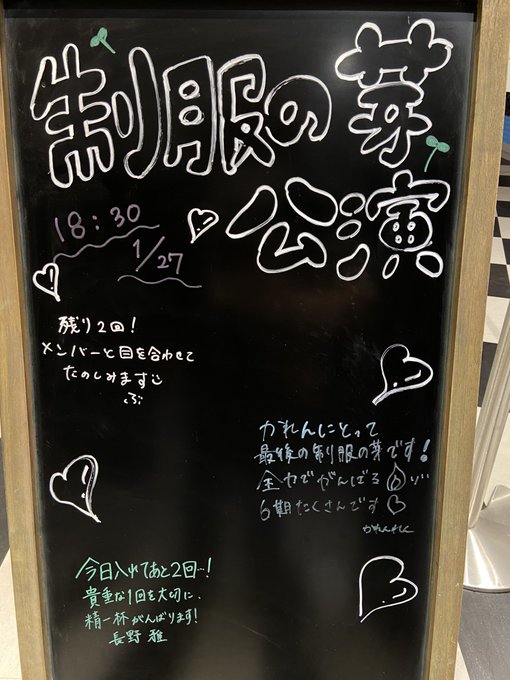 制服の芽
公演
18:30
1/27
残り2回!
メンバーと目を合わせて
たのしみます
ぶ
かれんにとって
最後の制服の芽です!
全力でがんばる
6期たくさんです
かれんれん
今日入れてあと2回…!
貴重な1回を大切に、
精一杯がんばります!
長野 雅